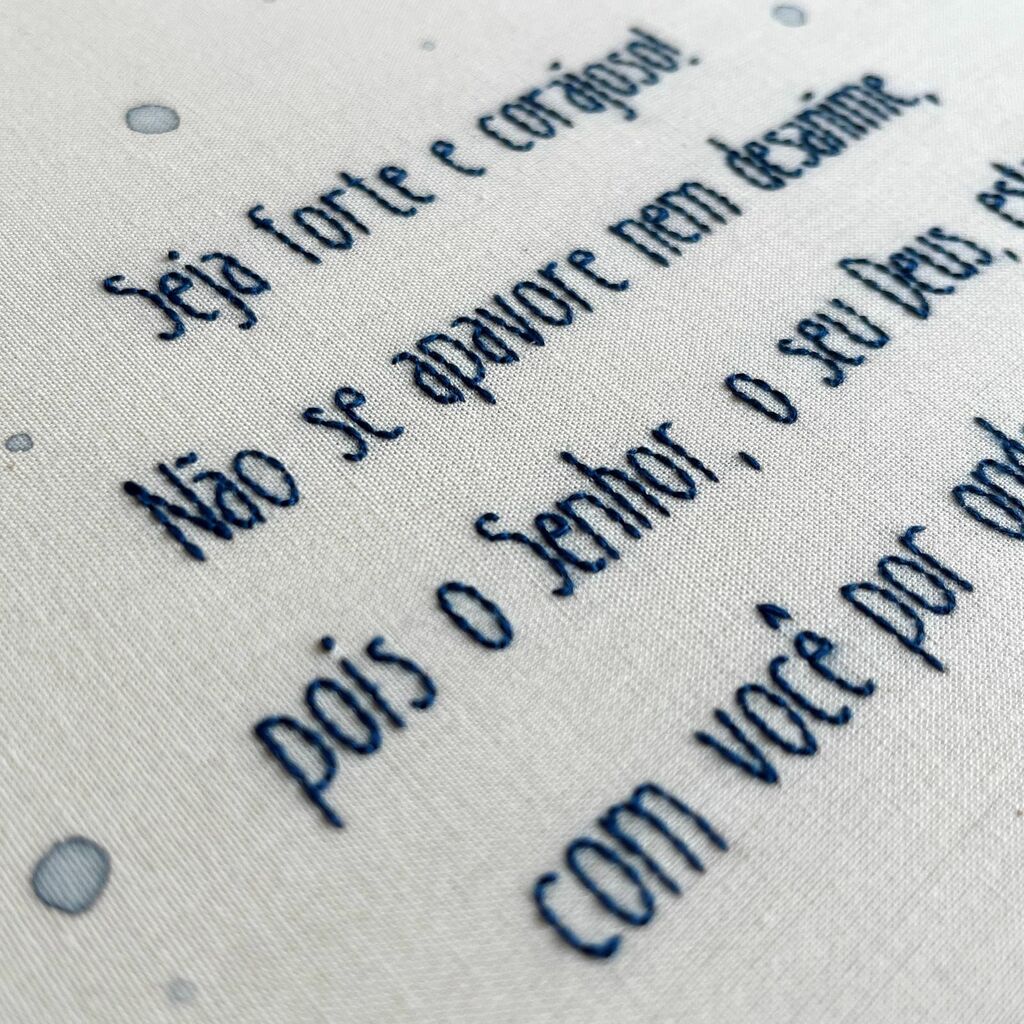 Seja forte e corajoso!
Não se apavore nem desanime,
pois o Senhor, o seu Deus,
com você por